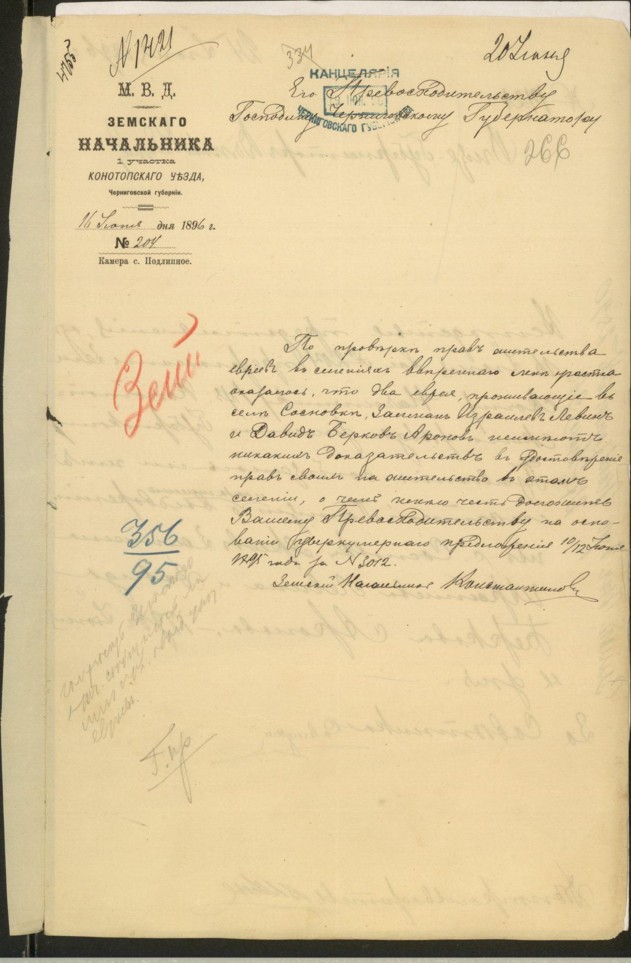 N 1421
334
20 Іюня
М. В. Д.
ЗЕМСКАГО
НАЧАЛЬНИКА
1 участка
КОНОТОПСКАГО УѢЗДА,
Черниговской губерніи.
16 Іюня дня 1896 г.
№ 204
Камера с. Подлипное.
КАНЦЕЛЯРІЯ
ЧЕРНИГОВСКАГО ГУБЕРНАТОРА
Его Превосходительству
Господину Черниговскому Губернатору
266
По провѣркѣ правъ жительства
евреевъ въ селеніяхъ ввѣреннаго мнѣ участка
оказалось, что два еврея, проживающіе въ
селѣ Сосновкѣ, Залманъ Израилевъ Левинъ
и Давидъ Берковъ Ароновъ, неимѣютъ
никакихъ доказательствъ въ удостовѣреніе
правъ своихъ на жительство въ этомъ
селеніи, о чемъ имѣю честь доложить
Вашему Превосходительству на осно-
ваніи циркулярнаго предложенія 10/12 Іюня
1895 года за N 3012.
Земскій Начальникъ Константиновъ
356
95
евреи.